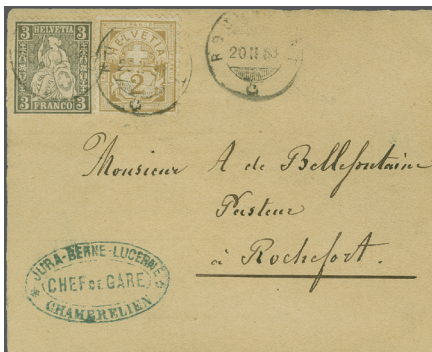 HELVETIA
3 3
3 FRANCO 3
HELVETIA
2
20 II 83
Monsieur A de Bellefontaine
Pasteur
à Rochefort.
JURA-BERNE-LUCERNE
CHEF DE GARE
CHAMBRELIEN